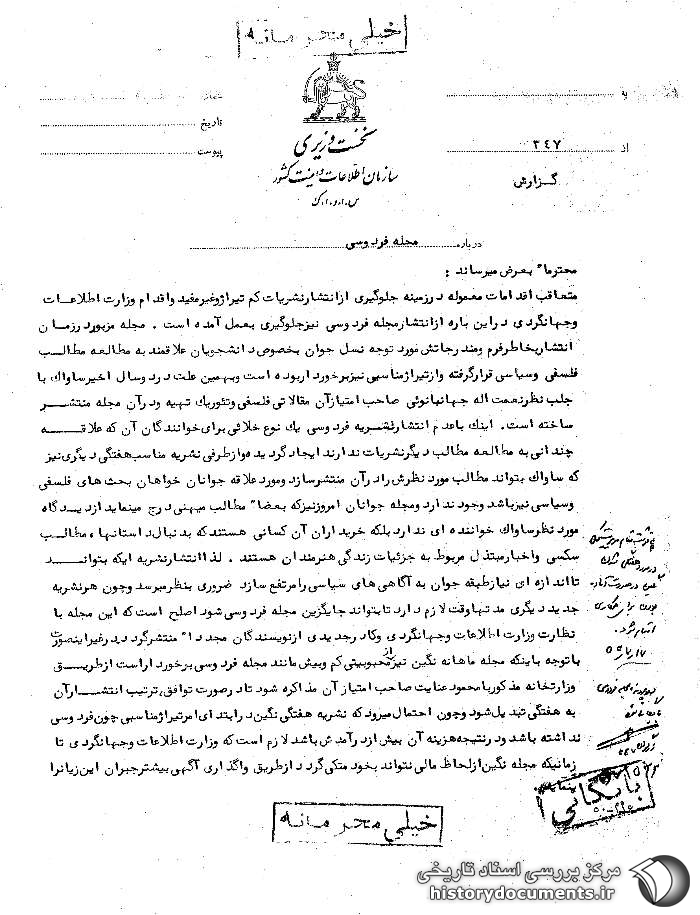 خیلی محرمانه
به
شماره
تاریخ
از ۳۴۷
پیوست
نخست وزیری
سازمان اطلاعات و امنیت کشور
س.ا.و.ا.ک
گزارش
درباره مجله فردوسی
محترما" بعرض میرساند :
متعاقب اقدامات معموله در زمینه جلوگیری از انتشار نشریات کم تیراژ و غیر مفید و اقدام وزارت اطلاعات
و جهانگردی در این باره از انتشار مجله فردوسی نیز جلوگیری بعمل آمده است . مجله مزبور در زمان
انتشار بخاطر فرم و مندرجاتش مورد توجه نسل جوان بخصوص دانشجویان علاقمند به مطالعه مطالب
فلسفی و سیاسی قرار گرفته و از تیراژ مناسبی نیز برخوردار بوده است و بهمین علت در دو سال اخیر ساواک با
جلب نظر نعمت اله جهانبانوئی صاحب امتیاز آن مقالاتی فلسفی و تئوریک تهیه و در آن مجله منتشر
ساخته است . اینک با عدم انتشار نشریه فردوسی یک نوع خلائی برای خوانندگان آن که علاقه
چندانی به مطالعه مطالب دیگر نشریات ندارند ایجاد گردیده و از طرفی نشریه مناسب هفتگی دیگری نیز
که ساواک بتواند مطالب مورد نظرش را در آن منتشر سازد و مورد علاقه جوانان خواهان بحث های فلسفی
و سیاسی نیز باشد وجود ندارد و مجله جوانان امروز نیز که بعضا" مطالب میهنی درج مینماید از دیدگاه
مورد نظر ساواک خواننده ای ندارد بلکه خریداران آن کسانی هستند که بدنبال داستانها ، مطالب
سکسی و اخبار مبتذل مربوط به جزئیات زندگی هنرمندان هستند . لذا انتشار نشریه ایکه بتواند
تا اندازه ای نیاز طبقه جوان به آگاهی های سیاسی را مرتفع سازد ضروری بنظر میرسد و چون هر نشریه
جدید دیگری مدتها وقت لازم دارد تا بتواند جایگزین مجله فردوسی شود اصلح است که این مجله با
نظارت وزارت اطلاعات و جهانگردی و کادر جدیدی از نویسندگان مجددا" منتشر گردد در غیر اینصورت
با توجه باینکه مجله ماهانه نگین نیز از محبوبیتی کم و بیش مانند مجله فردوسی برخوردار است از طریق
وزارتخانه مذکور با محمود عنایت صاحب امتیاز آن مذاکره شود تا در صورت توافق ، ترتیب انتشار آن
به هفتگی تبدیل شود و چون احتمال میرود که نشریه هفتگی نگین در ابتدای امر تیراژ مناسبی چون فردوسی
نداشته باشد و در نتیجه هزینه آن بیش از درآمدش باشد لازم است که وزارت اطلاعات و جهانگردی تا
زمانیکه مجله نگین از لحاظ مالی نتواند بخود متکی گردد از طریق واگذاری آگهی بیشتر جبران این زیان را
بنماید
بایگانی
خیلی محرمانه
مرکز بررسی اسناد تاریخی
historydocuments.ir